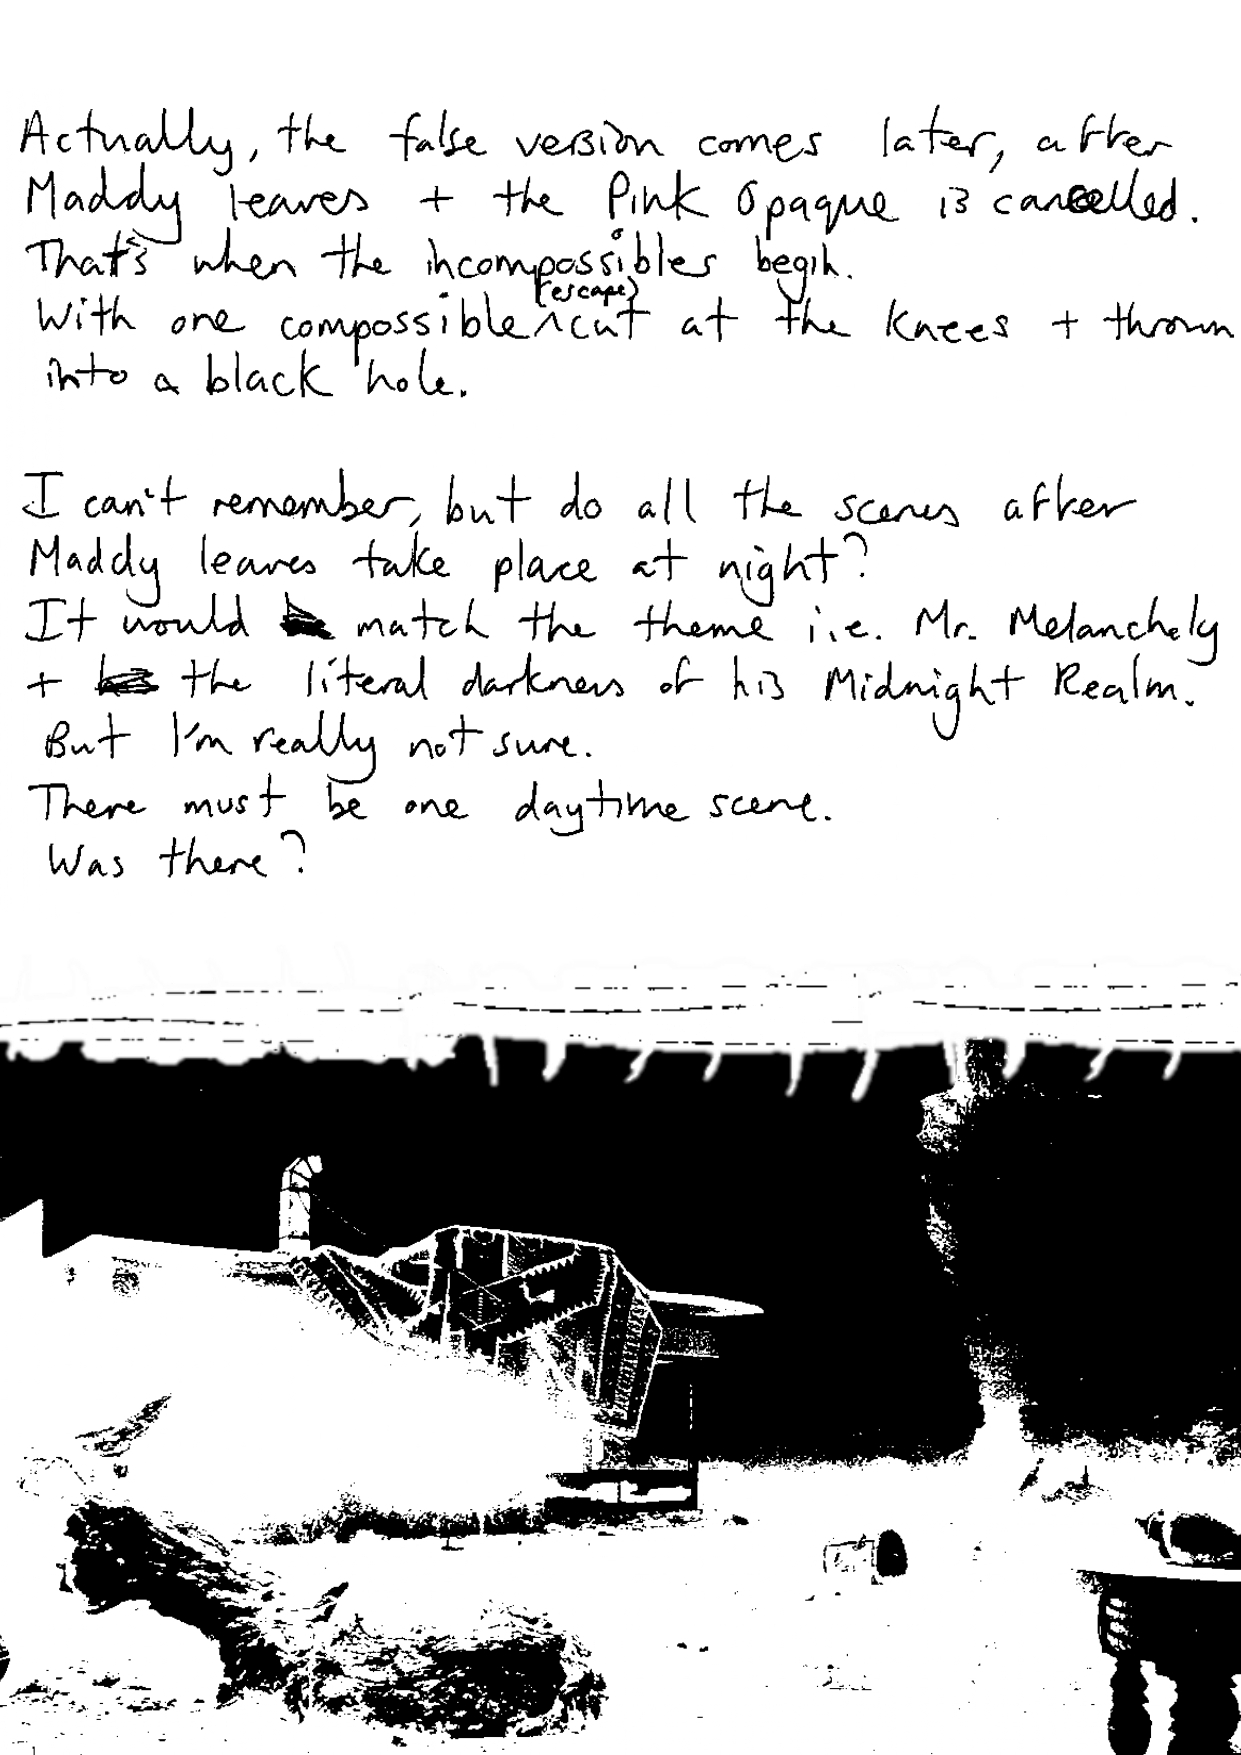 Actually, the false version comes later, after
Maddy leaves + the Pink Opaque is cancelled.
That's when the incompossibles begin.
With one compossible (escape) cut at the knees + thrown
into a black hole.
I can't remember, but do all the scenes after
Maddy leaves take place at night?
It would match the theme i.e. Mr. Melancholy
+ the literal darkness of his Midnight Realm.
But I'm really not sure.
There must be one daytime scene.
Was there?